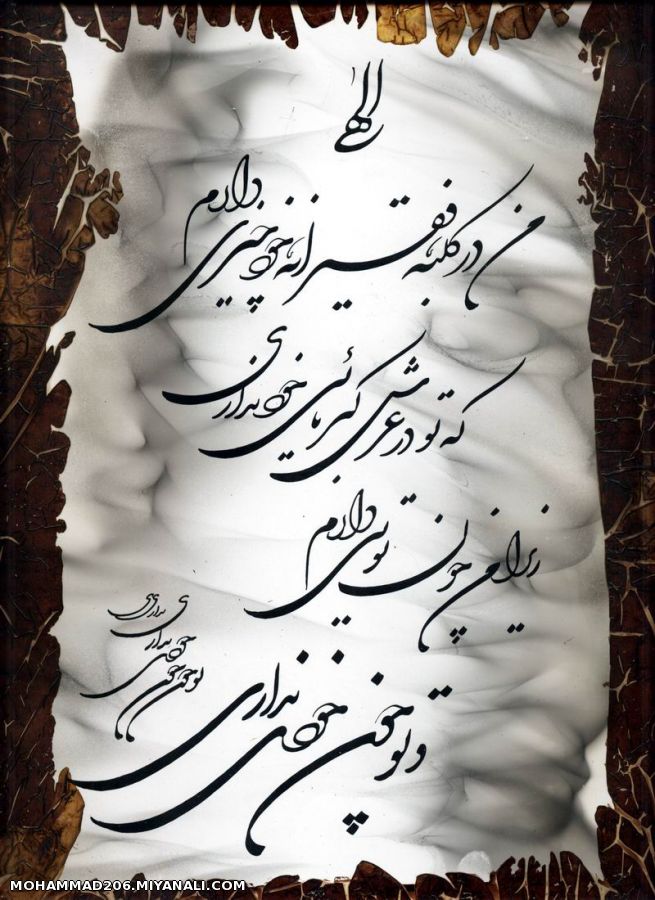 الهی
من در کلبه فقیرانه خود چیزی دارم
که تو در عرش کبریائی خود نداری
زیرا من چون تویی دارم
و تو چون خودی نداری
تو چون خودی نداری
MOHAMMAD206.MIYANALI.COM